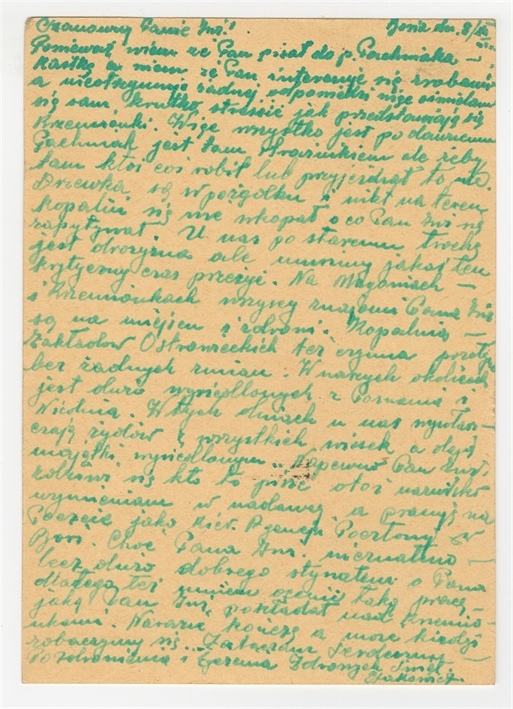 Szanowny Panie Inż!. Boria dn. 8/
Ponieważ wiem że Pan pisał do p. Gachniaka –
kartkę a wiem że Pan interesuje się
a nieotrzymuję żadnej odpowiedzi więc ośmielam
się sam krótko streścić jak przedstawiają się
Krzemionki. Więc wszystko jest po dawnemu
Gachniak jest tam strażnikiem ale żeby
tam ktoś coś robił lub przyjeżdżał to nie.
Drzewka są w porządku i nikt na teren
Kopalni się nie wkopał o co Pan Inż się
zapytywał. U nas po staremu trochę
jest drożyzna ale musimy jakoś ten
krytyczny czas przeżyć. Na
i Krzemionkach wszyscy znajomi Pana Inż
są na miejscu i zdrowi. Kopalnia –
Zakładów Ostrowieckich też czynna
bez żadnych zmian. W naszych okolicach
jest dużo wysiedlonych z Poznania i
Wiednia. W tych dniach u nas
czają żydów z wszystkich wiosek a dają
majątki wysiedlonym. Zapewne Pan
kto to pisze otóż nazwisko
wymieniam w nadawcy, a pracuję na
Poczcie jako Agencji Pocztowej w
Borii. Choć Pana Inż. nieznałem –
lecz dużo dobrego słyszałem o Panu
dlatego też umiem ocenić taką pracę
jaką Pan Inż. pokładał nad Krzemio-
nkami. Narazie kończę a może kiedyś
zobaczymy się. Serdeczne
Pozdrowienia i życzenia Zdrowych Świąt.